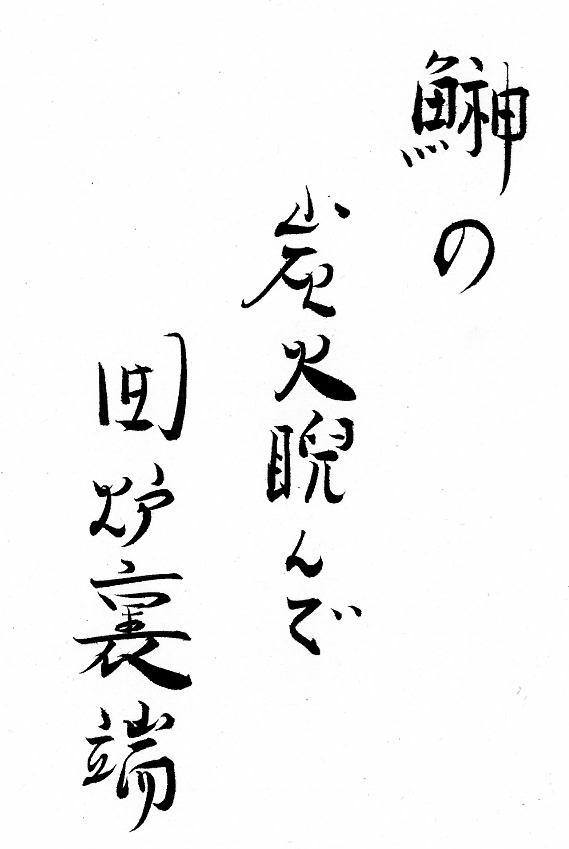 鰰の
炭火睨んで
囲炉裏端